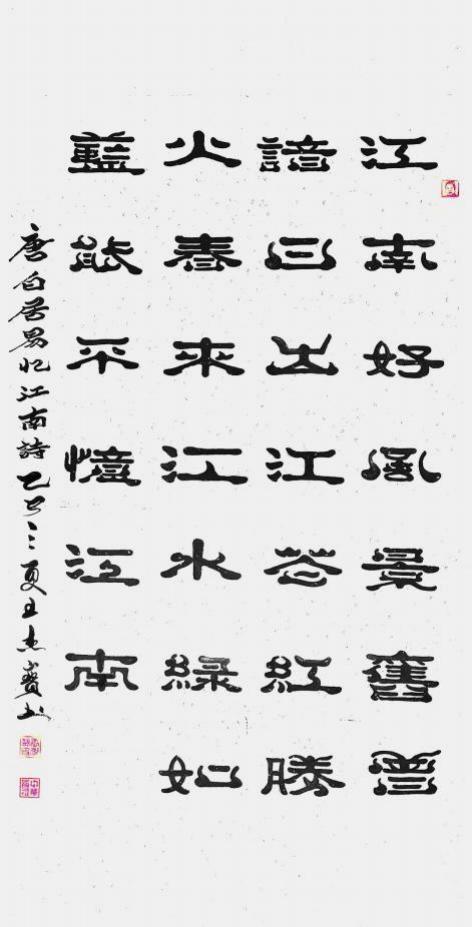 江南好風景舊曾
諳日出江花紅勝
火春來江水綠如
藍能不憶江南
唐白居易忆江南詩乙巳之夏王寶书